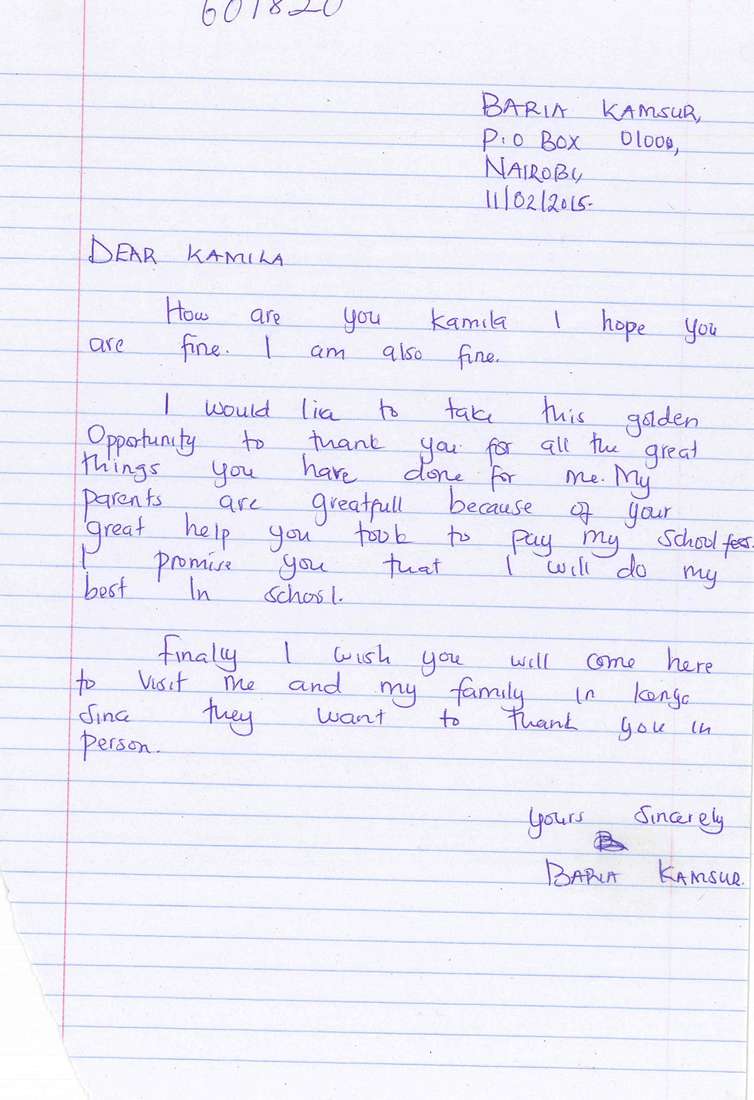 601820
BARIA KAMSUR,
P.O BOX 01000,
NAIROBI,
11/02/2015.
DEAR KAMILA
How are you kamila I hope you
are fine. I am also fine.
I would lia to take this golden
Opportunity to thank you for all the great
things you have done for me. My
parents are greatfull because of your
great help you took to pay my school fees.
I promise you that I will do my
best In school.
Finally I wish you will come here
to visit me and my family in kenya
Since they want to thank you in
person.
Yours Sincerely
BARIA KAMSUR.